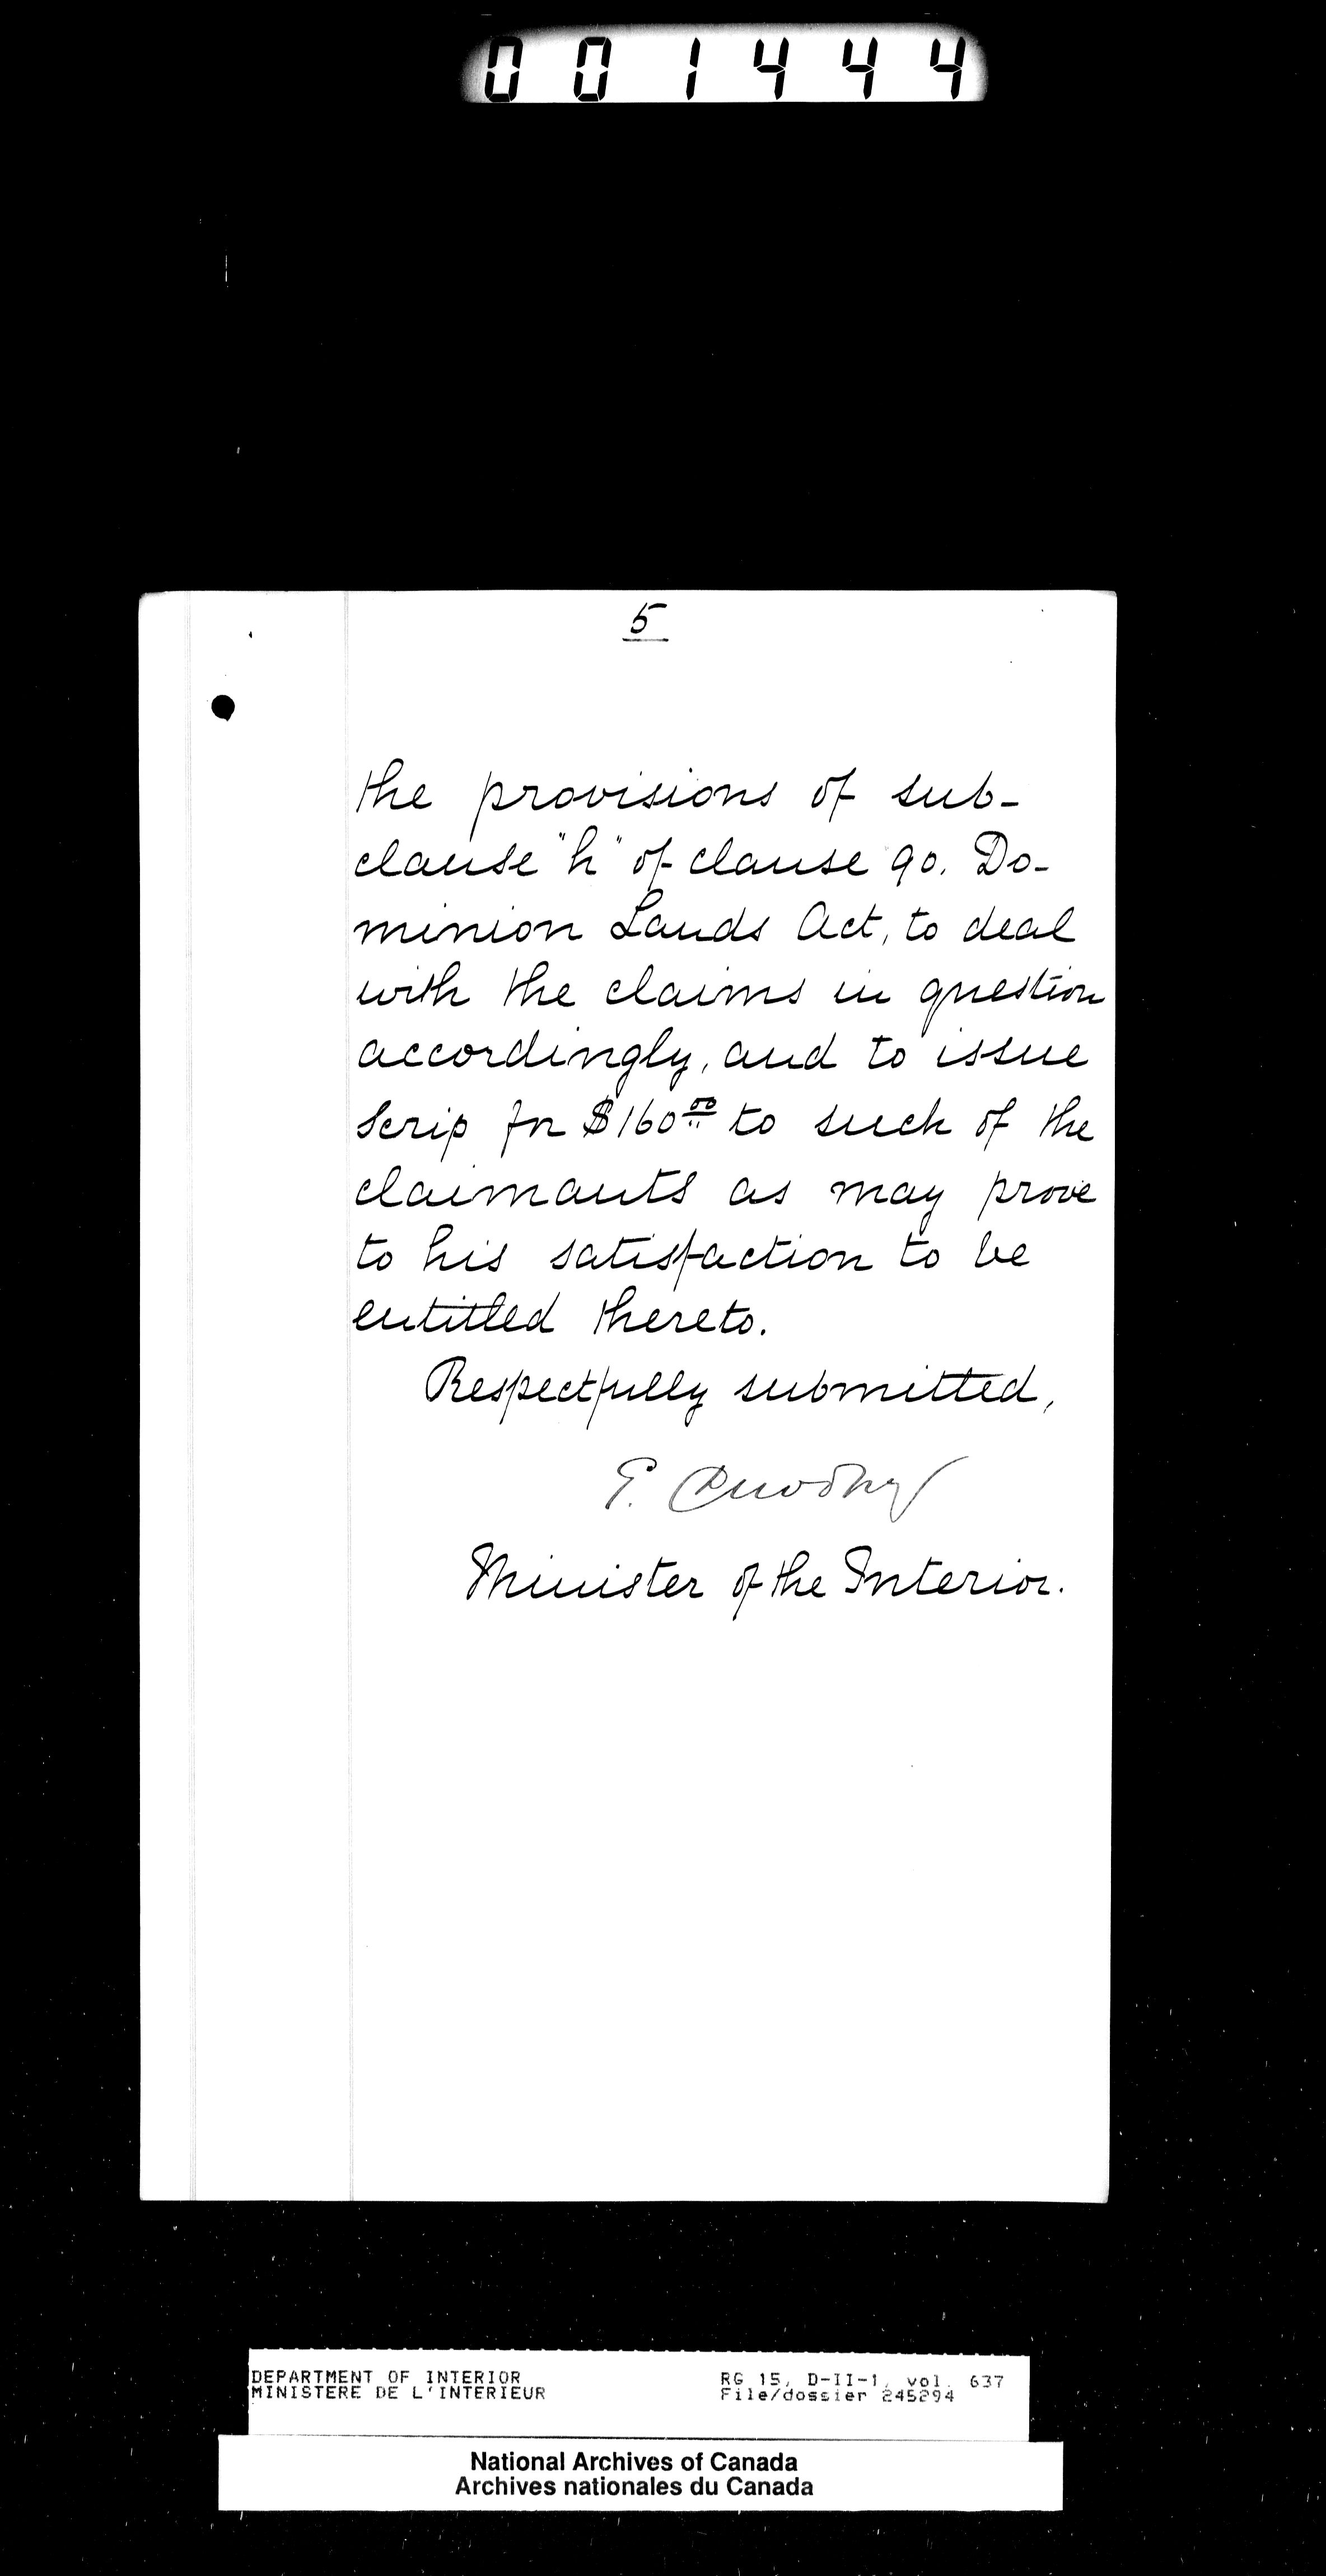 001444
5
the provisions of sub-
clause "h" of clause 90. Do-
minion Lands Act, to deal
with the claims in question
accordingly, and to issue
Scrip for $160 00 to such of the
claimants as may prove
to his satisfaction to be
entitled thereto.
Respectfully submitted,
Minister of the Interior.
DEPARTMENT OF INTERIOR RG 15, D-II-1, vol. 637
MINISTERE DE L'INTERIEUR File/dossier 245294
National Archives of Canada
Archives nationales du Canada